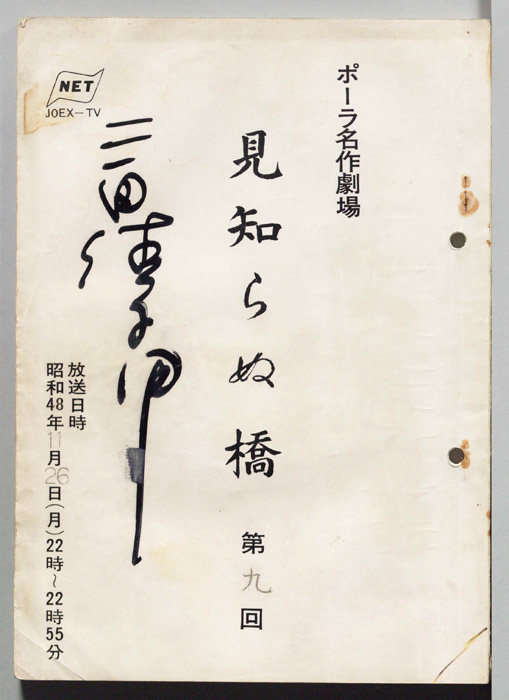 ポーラ名作劇場
見知らぬ橋
第九回
三田佳子
NET
JOEX-TV
放送日時
昭和48年11月26日(月)22時~22時55分